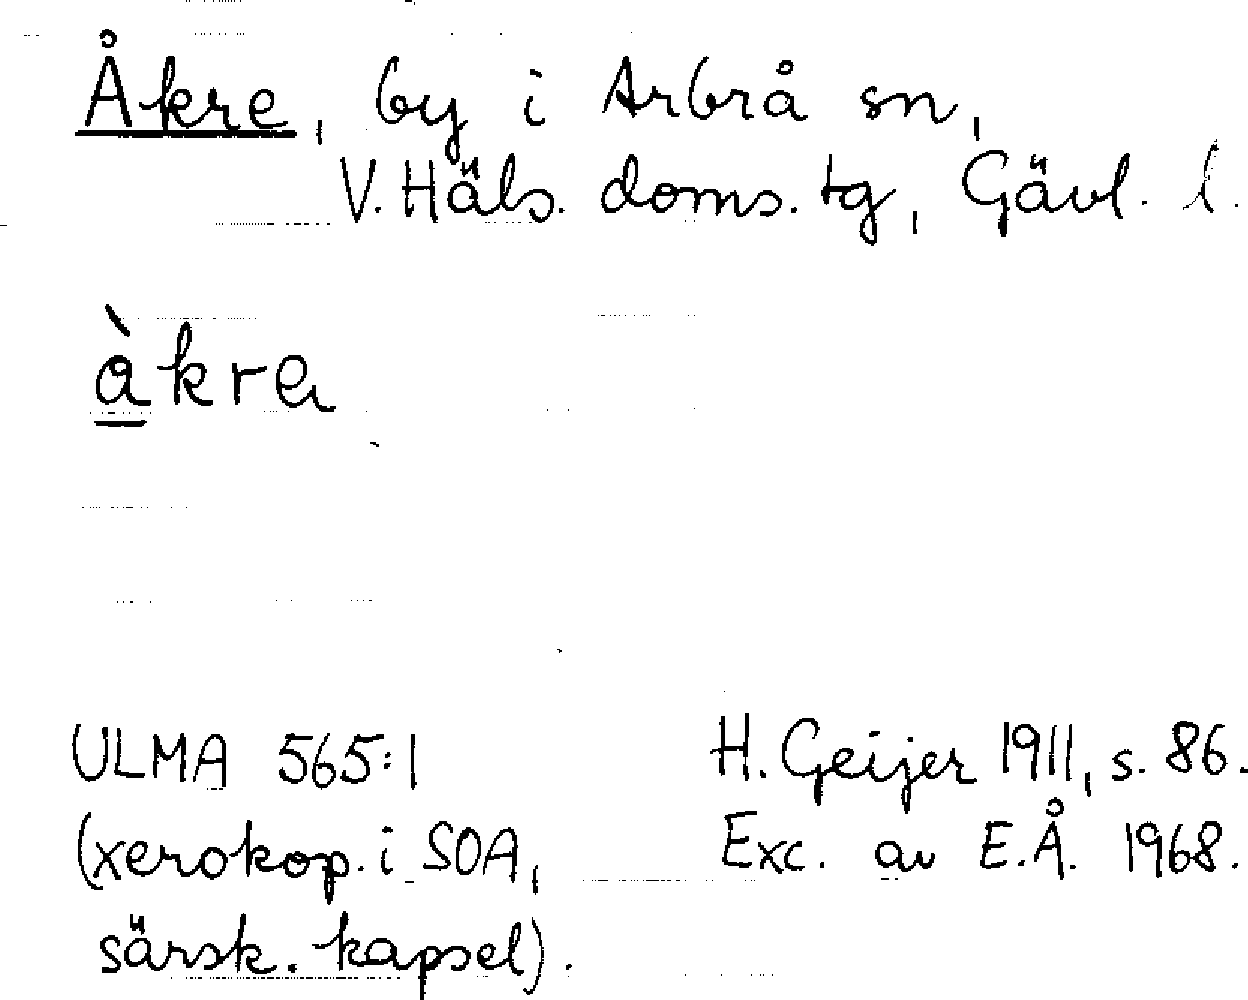 Åkre, by i Arbrå sn,
V. Häls. doms. tg, Gävl. l.
àkre
ULMA 565:1
(xerokop. i SOA,
särsk. kapsel).
H. Geijer 1911, s. 86.
Exc. av E.Å. 1968.